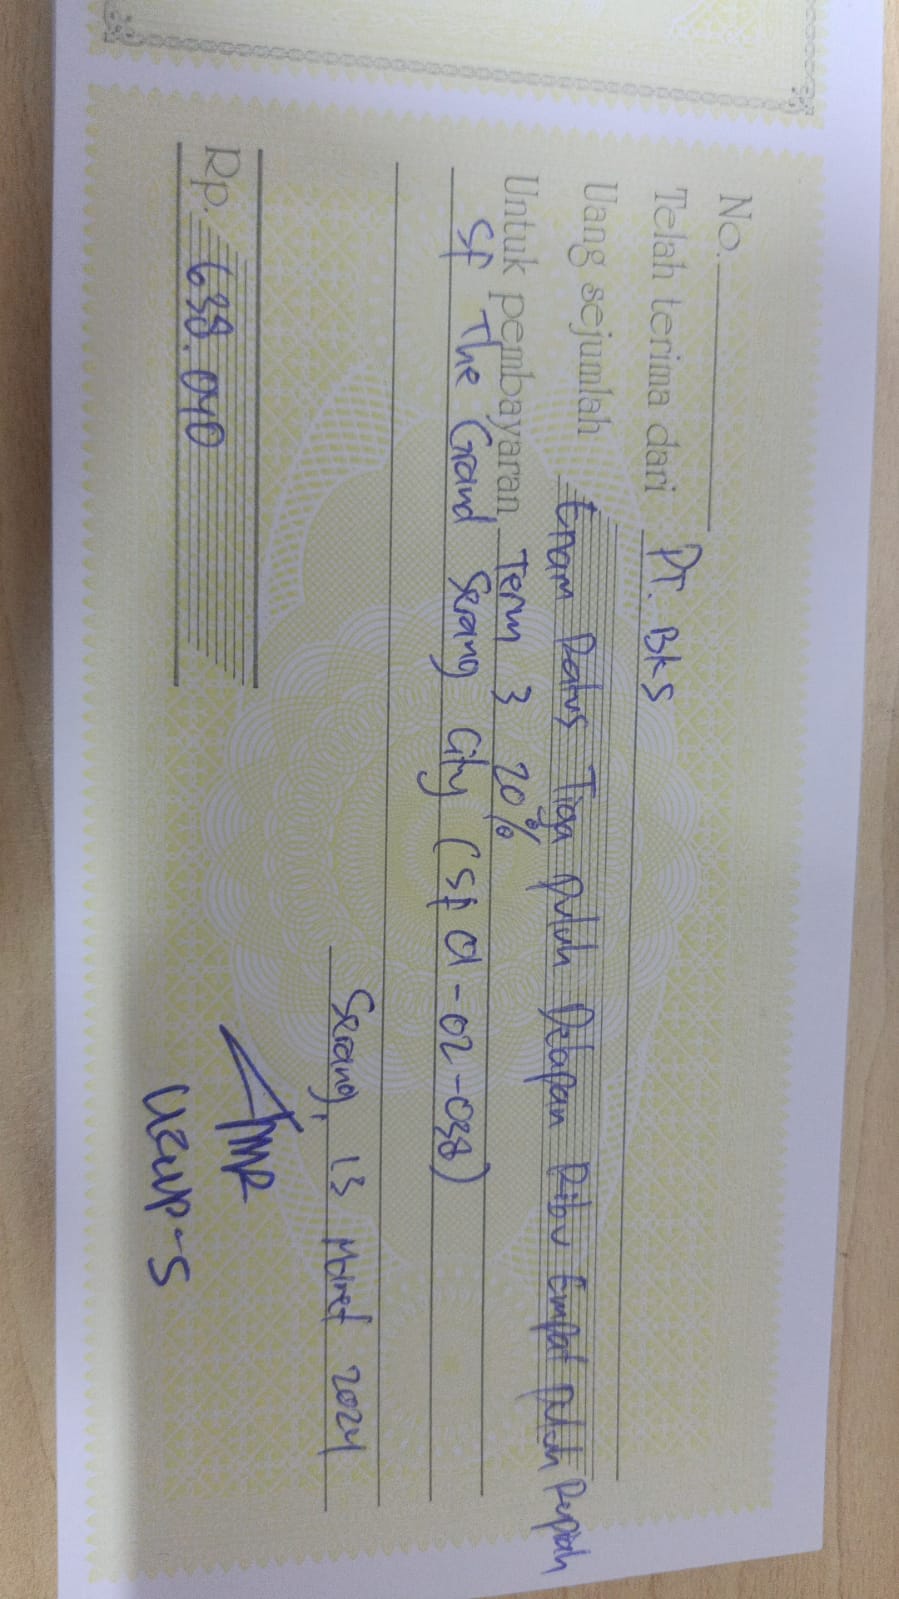 No.
Telah terima dari PT. BKS
Uang sejumlah Enam Ratus Tiga puluh Delapan Ribu Empat puluh Rupiah
Untuk pembayaran Term 3 20%
Sf The Grand Serang City (Sf A-02-038)
Serang, 13 Maret 2024
Rp. 638.040